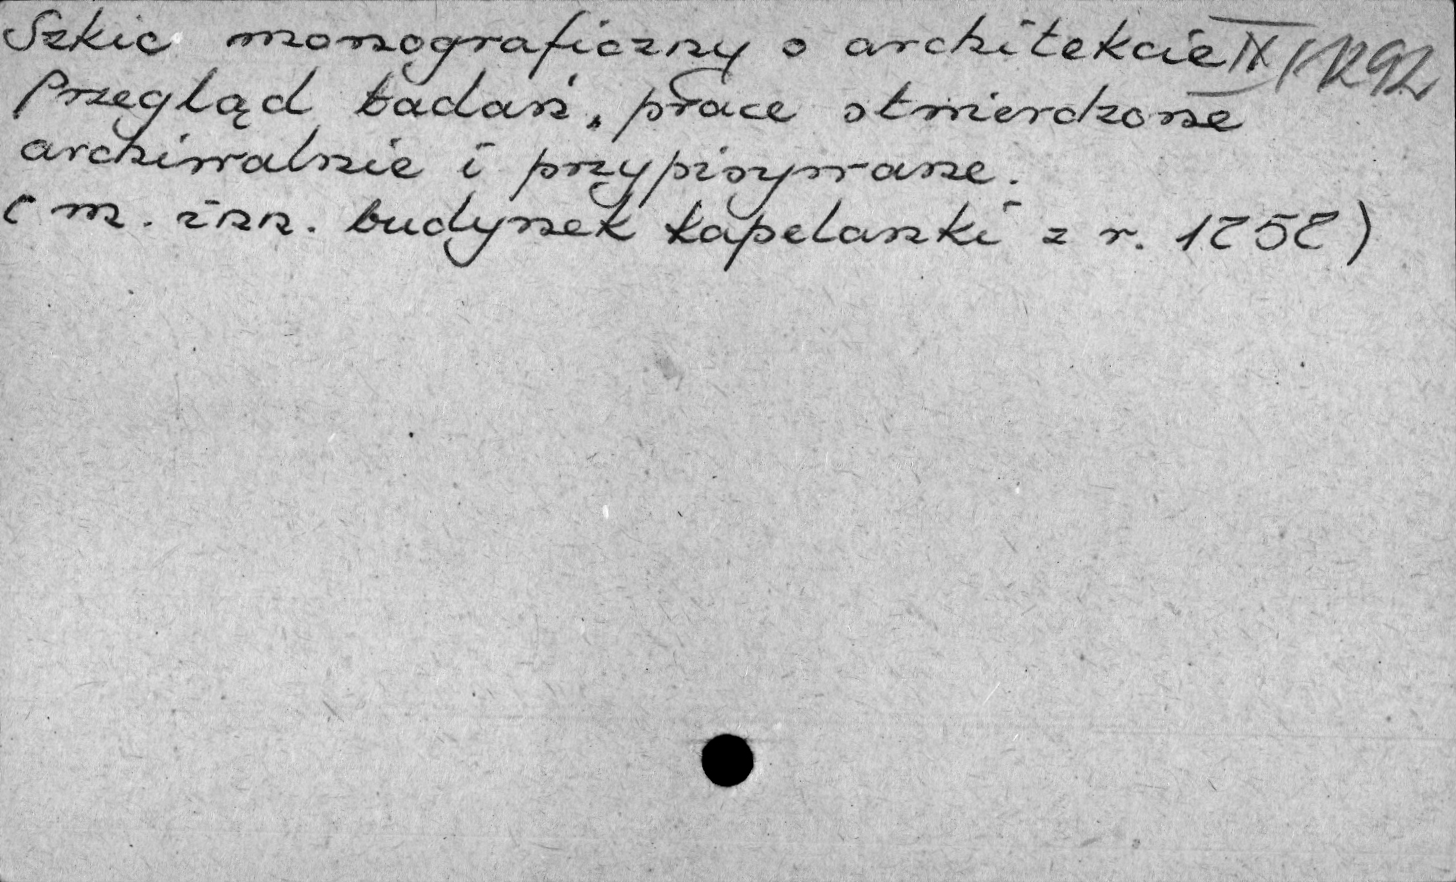 Szkic monograficzny o architekcie IX/1292
Przegląd badań, prace stwierdzone
archiwalnie i przypisywane.
(m. inn. budynek kapelanki z r. 1757)